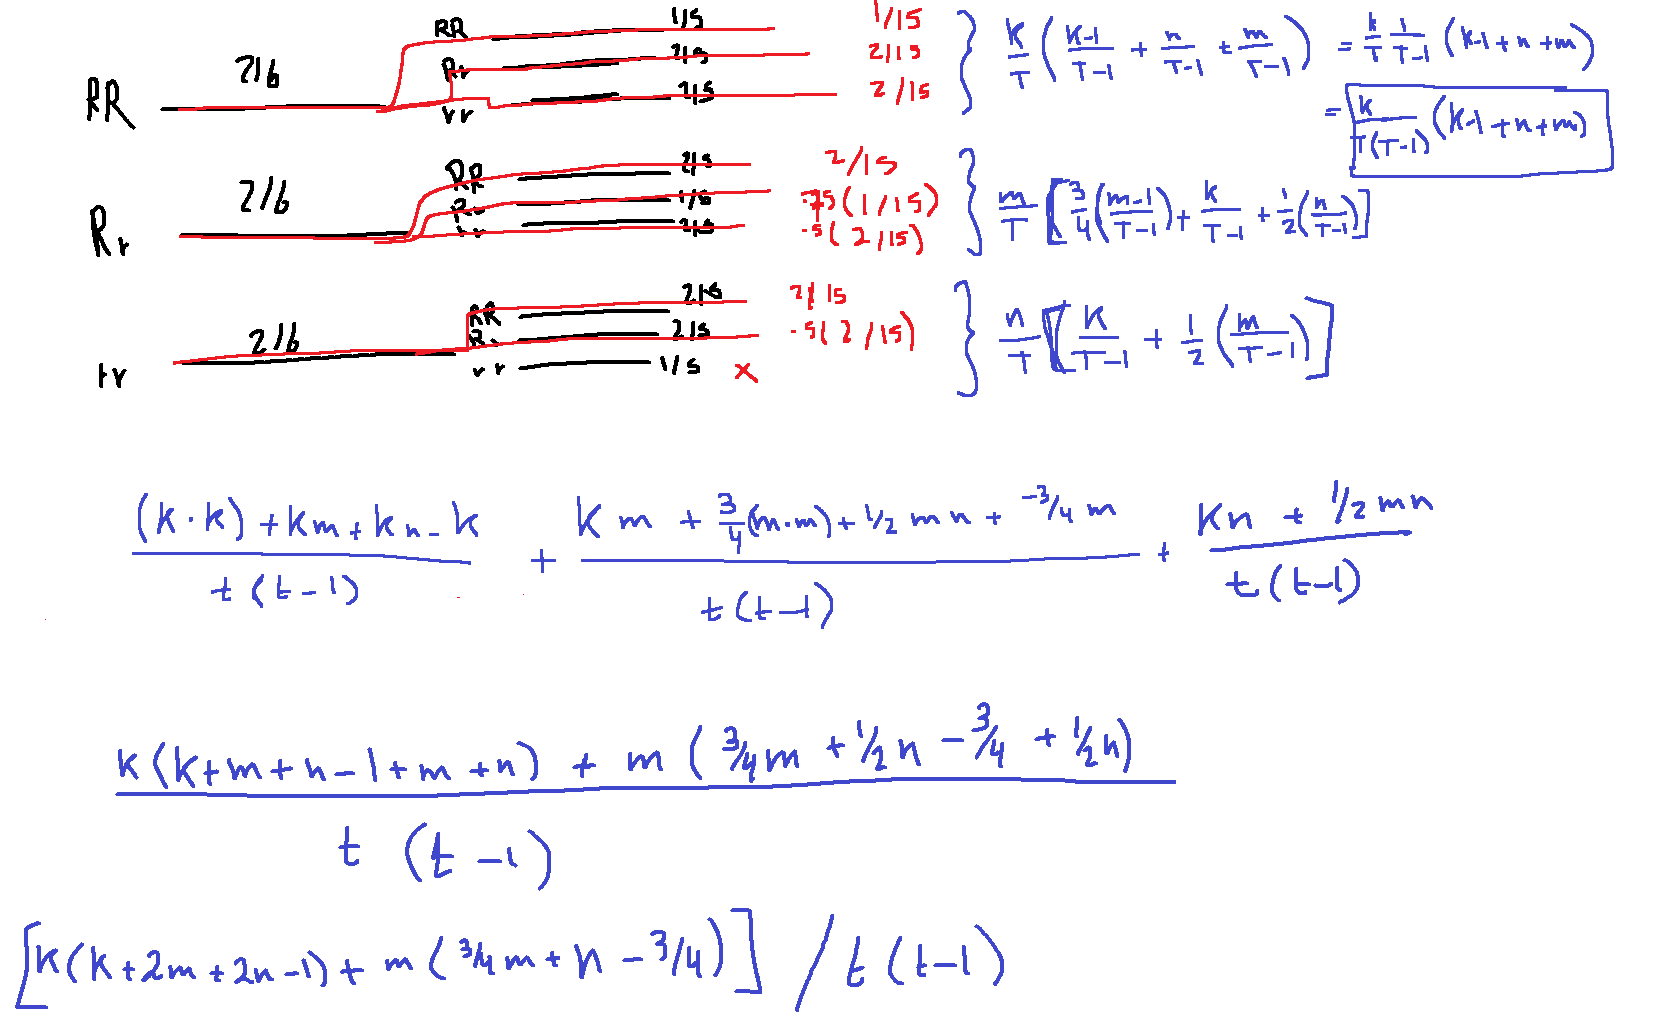 RR 2/6 RR 1/5 1/15
Rr 2/5 2/15
rr 2/5 2/15
} k/T ( k-1/T-1 + n/T-1 + m/T-1 ) = k/T 1/T-1 (k-1+n+m)
= k/T(T-1) (k-1+n+m)
Rr 2/6 RR 2/5 2/15
Rr 1/5 .75(1/15)
rr 2/5 .5(2/15)
} m/T [ 3/4 (m-1/T-1) + k/T-1 + 1/2 (n/T-1) ]
rr 2/6 RR 2/5 2/15
Rr 2/5 .5(2/15)
rr 1/5 x
} n/T [ k/T-1 + 1/2 (m/T-1) ]
(k·k)+km+kn-k / t(t-1) + km + 3/4(m·m)+1/2mn+-3/4m / t(t-1) + kn+1/2mn / t(t-1)
k(k+m+n-1+m+n) + m(3/4m+1/2n-3/4+1/2n)
t(t-1)
[k(k+2m+2n-1)+m(3/4m+n-3/4)] / t(t-1)